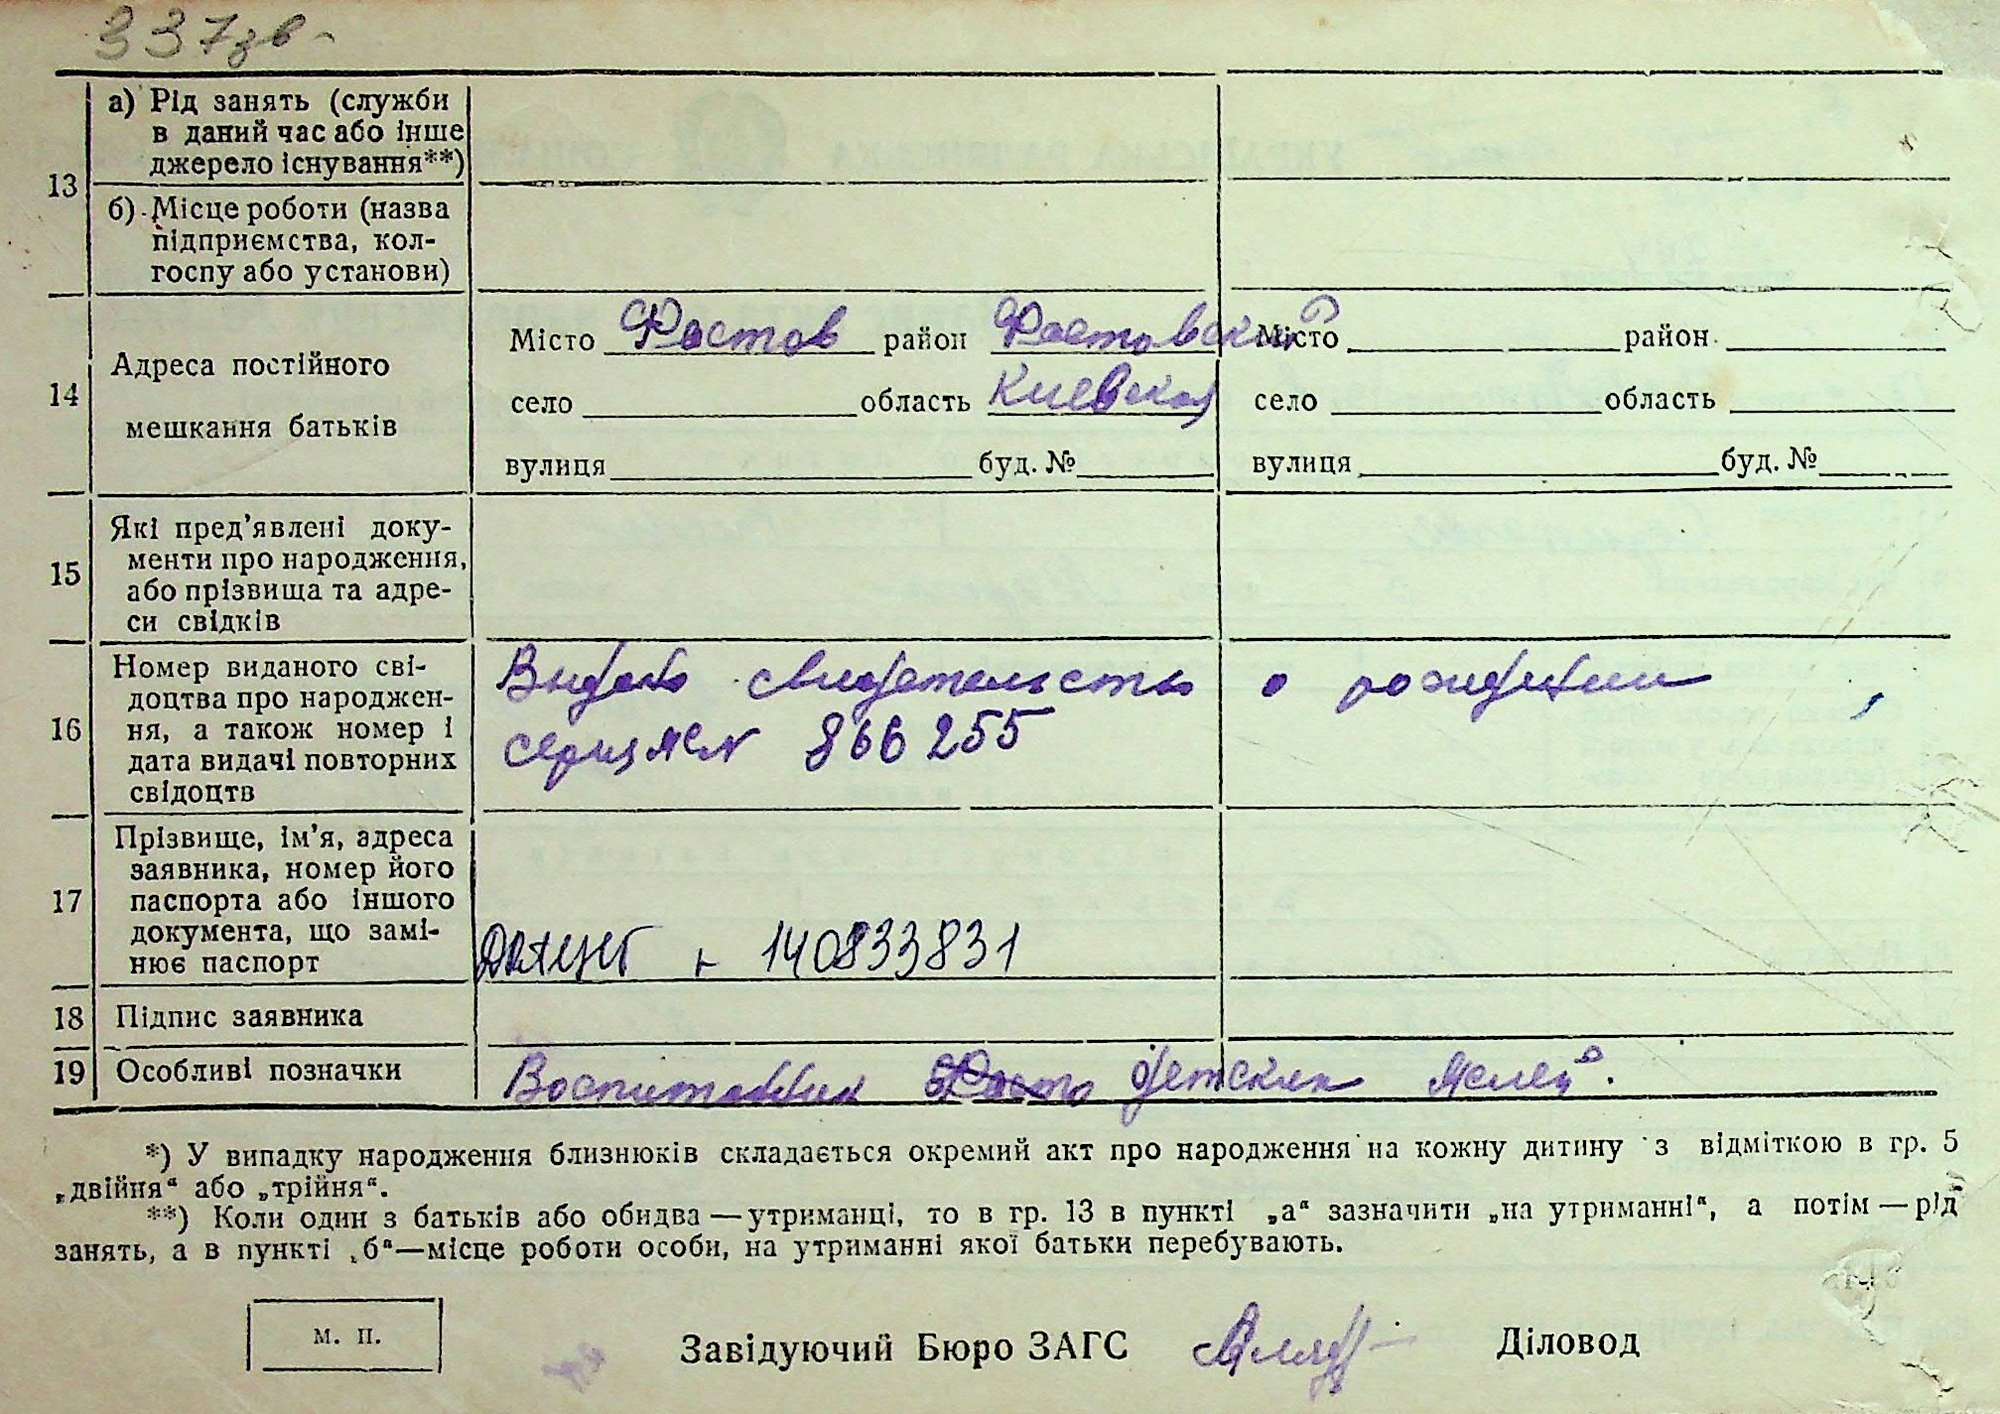 337зв
13
а) Рід занять (служби
в даний час або інше
джерело існування**)
б) Місце роботи (назва
підприємства, кол-
госпу або установи)
14
Адреса постійного
мешкання батьків
Місто Фастов район Фастовский Місто район
село область Киевская село область
вулиця буд. № вулиця буд. №
15
Які пред'явлені доку-
менти про народження,
або прізвища та адре-
си свідків
16
Номер виданого сві-
доцтва про народжен-
ня, а також номер і
дата видачі повторних
свідоцтв
Выдано свидетельство о рождении
серия 866255
17
Прізвище, ім'я, адреса
заявника, номер його
паспорта або іншого
документа, що замі-
нює паспорт
140833831
18 Підпис заявника
19 Особливі позначки Воспитанник детских яслей.
*) У випадку народження близнюків складається окремий акт про народження на кожну дитину з відміткою в гр. 5
„двійня“ або „трійня“.
**) Коли один з батьків або обидва — утриманці, то в гр. 13 в пункті „а“ зазначити „на утриманні“, а потім — рід
занять, а в пункті „б“ — місце роботи особи, на утриманні якої батьки перебувають.
м. п.
Завідуючий Бюро ЗАГС Діловод